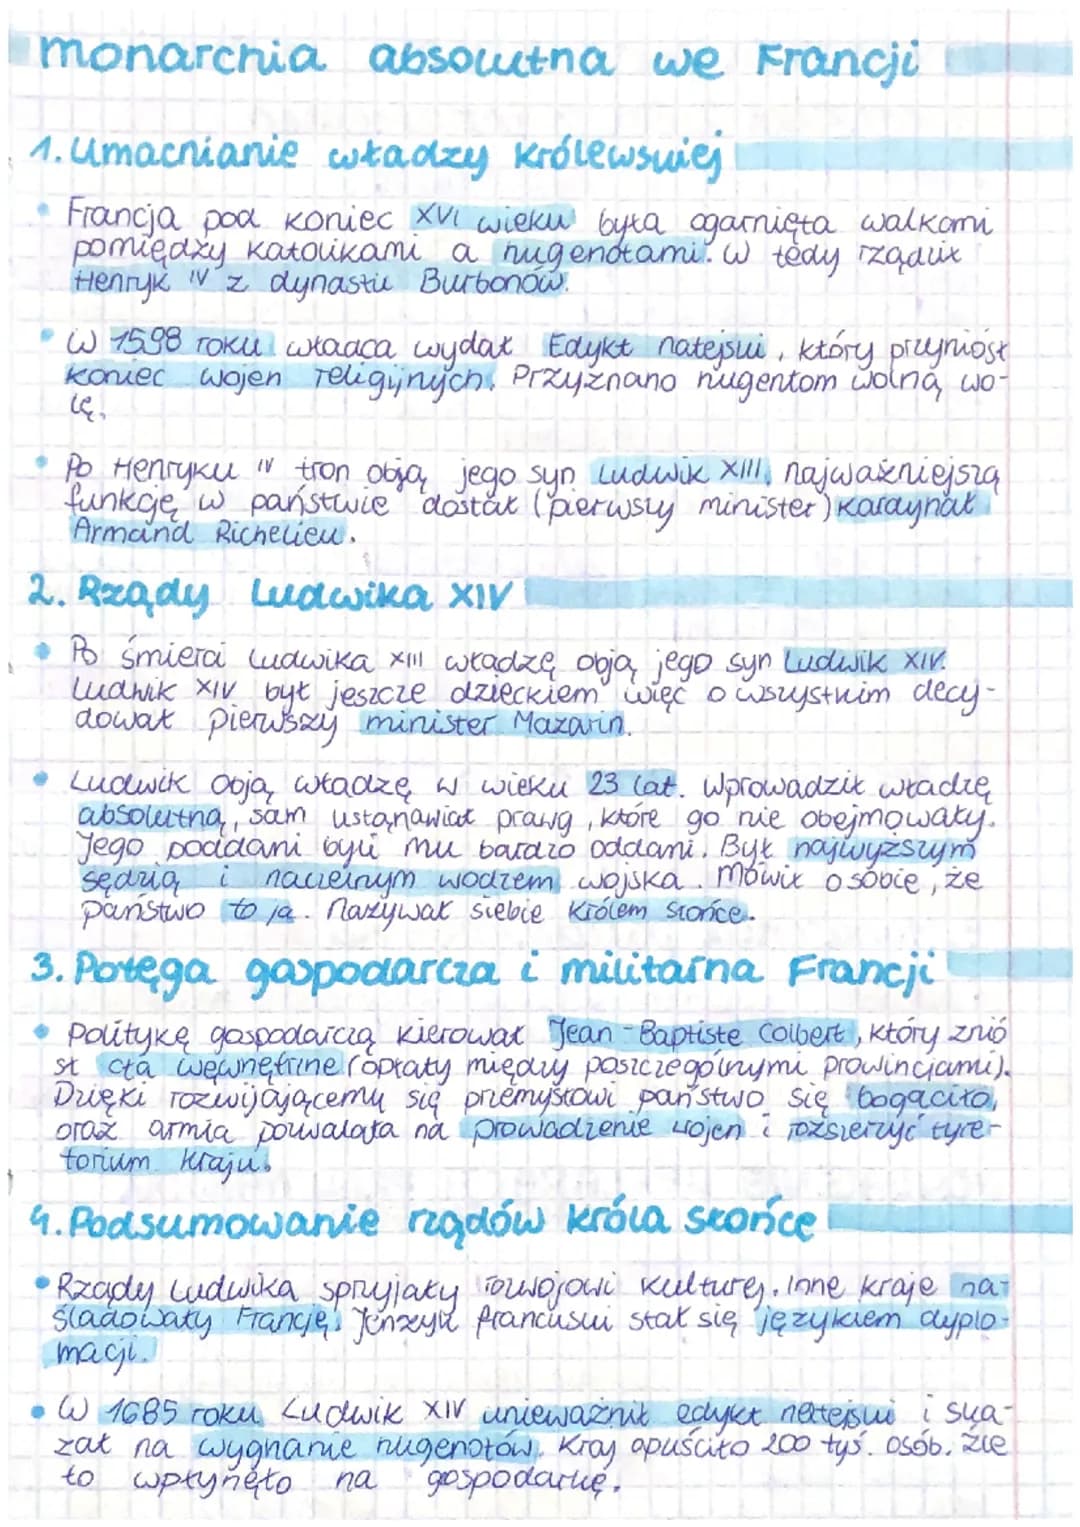 monarchia absolutna we Francji
1. Umacnianie władzy królewskiej
Francja pod koniec XVI wieku była ogarnięta walkami
pomiędzy katolikami a hugenotami. W tedy rządził
Henryk IV z dynastii Burbonów.
W 1598 roku władca wydał Edykt natejski, który przyniósł
koniec wojen religijnych. Przyznano hugentom wolną wo-
lę.
Po Henryku IV tron objął jego syn Ludwik XIII, najważniejszą
funkcję w państwie dostał (pierwszy minister) kardynał
Armand Richelieu.
2. Rządy Ludwika XIV
Po śmierci Ludwika XIII władzę objął jego syn Ludwik XIV.
Ludwik XIV był jeszcze dzieckiem więc o wszystkim decy-
dował pierwszy minister Mazarin.
Ludwik objął władzę w wieku 23 lat. Wprowadził władzę
absolutną, sam ustanawiał prawa, które go nie obejmowały.
Jego poddani byli mu bardzo oddani. Był najwyższym
sędzią i naczelnym wodzem wojska. Mówił o sobie, że
państwo to ja. Nazywał siebie Królem Słońce.
3. Potęga gospodarcza i militarna Francji
Politykę gospodarczą kierował Jean-Baptiste Colbert, który znió
sł cła wewnętrzne (opłaty między poszczególnymi prowincjami).
Dzięki rozwijającemu się przemysłowi państwo się bogaciło,
oraz armia pozwalała na prowadzenie wojen i rozszerzyć tyre-
torium kraju.
4. Podsumowanie rządów króla słońce
Rządy Ludwika sprzyjały rozwojowi kulturej. Inne kraje na-
śladowały Francję. Jenzyk francuski stał się językiem dyplo-
macji.
W 1685 roku Ludwik XIV unieważnił edykt natejski i ska-
zał na wygnanie hugenotów. Kraj opuściło 200 tyś. osób. Źle
to wpłynęło na gospodarkę.